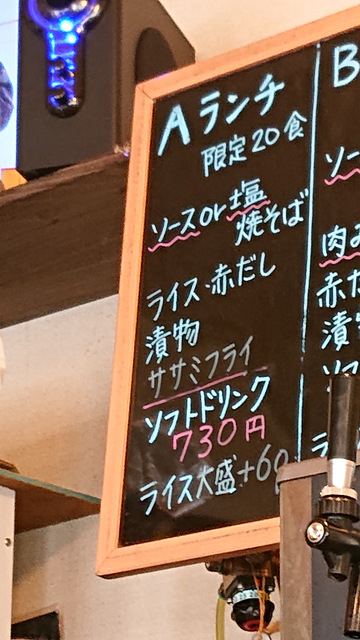 Aランチ
限定20食
ソースor塩
焼そば
ライス・赤だし
漬物
ササミフライ
ソフトドリンク
730円
ライス大盛+60
B
ソー
肉み
赤だ
漬物
ソフ
ラ